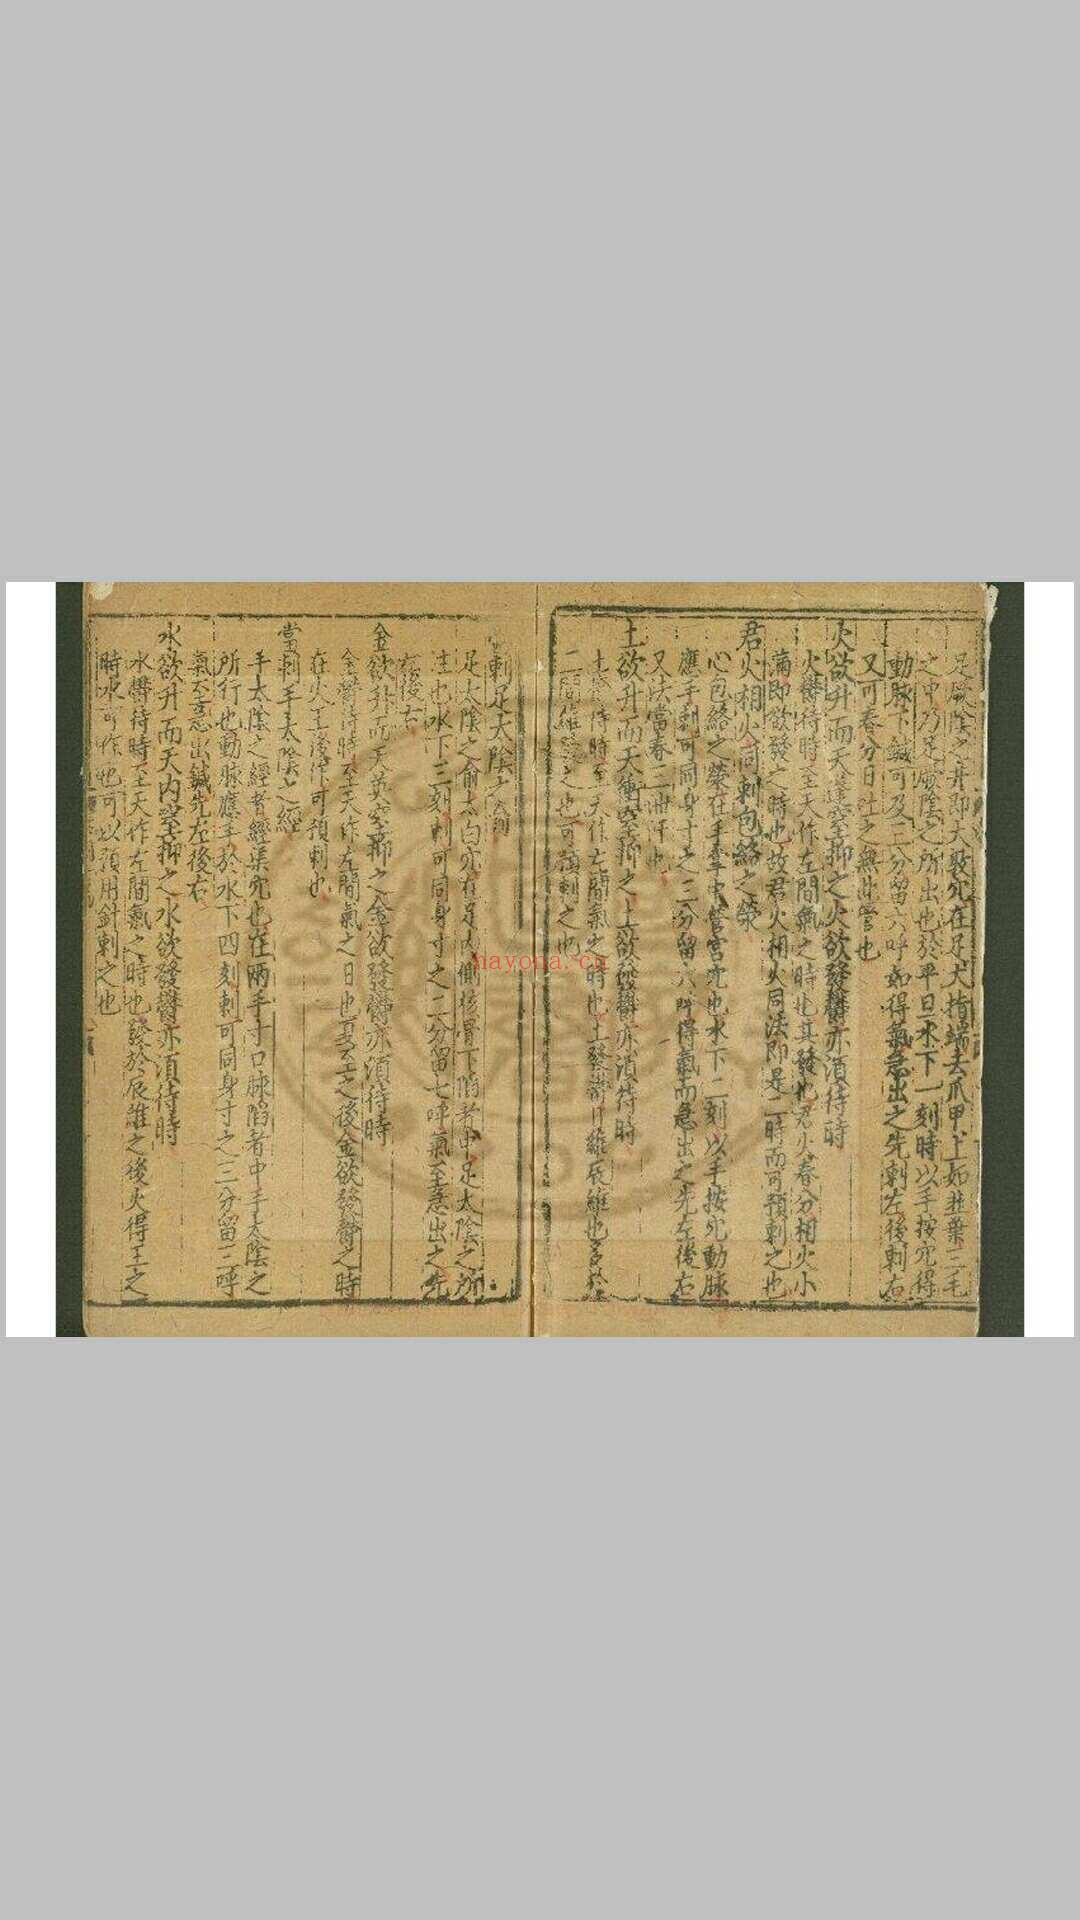 足厥陰之井即大敦穴在足大指端去爪甲上如韭葉三毛
之中乃足厥陰之所出也於平旦水下一刻時以手按穴得
動脉下鍼可及三分留六呼如得氣急出之先刺左後刺右
又可春分日吐之無此當也
火欲升而天蓬窒抑之火欲發鬱亦湏待時
火鬱待時至天作左間氣之時也其發也君火春分相火小
滿即欲發之時也故君火相火同法即是二時而可預刺之也
君火相火同刺包絡之滎
心包絡之滎在手掌中勞宮穴也水下二刻以手按穴動脉
應手刺可同身寸之三分留六呼得氣而急出之先左後右
又法當春三泄汗也
土欲升而天衝窒抑之土欲發鬱亦湏待時
土鬱待時至天作左間氣之時也土發 維辰維也
二間 之也可預刺之也
刺足太陰之俞
足太陰之俞太白穴在足內側核骨下陷者中足太陰之所
注也水下三刻刺可同身寸之二分留七呼氣至急出之先
左後右
金欲升而天英窒抑之金欲發鬱亦湏待時
金鬱待時至天作左間氣之日也 之後金欲發鬱之時
在火王後作可預刺也
當刺手太陰之經
手太陰之經者經渠穴也在兩手寸口脉陷者中手太陰之
所行也動脉應手於水下四刻刺可同身寸之三分留三呼
氣至急出鍼先左後右
水欲升而天内窒抑之水欲發鬱亦湏待時
水鬱待時至天作左間氣之時也發於辰誰之後火得王之
時水可作也可以預用針刺之也
hayona.cn